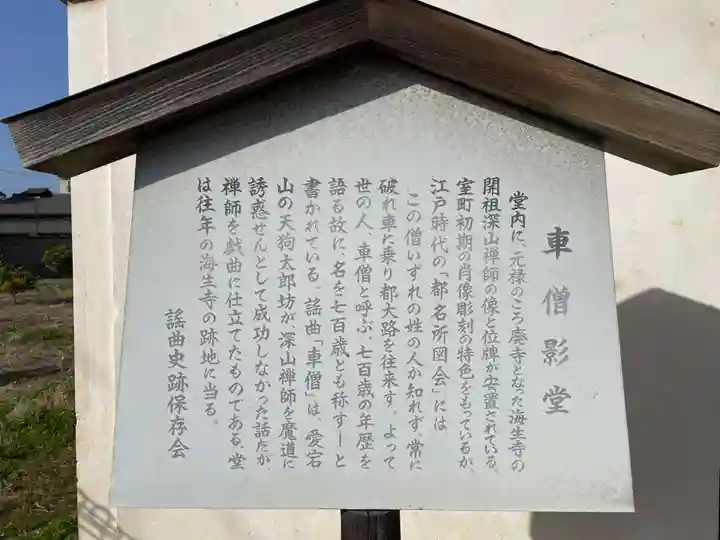 車僧影堂
堂内に、元禄のころ廃寺となった海生寺の
開祖深山禅師の像と位牌が安置されている。
室町初期の肖像彫刻の特色をもっているが、
江戸時代の「都名所図会」には
この僧いずれの姓の人か知れず、常に
破れ車に乗り都大路を往来す、よって
世の人、車僧と呼ぶ、七百歳の年歴を
語る故に、名を七百歳とも称すーと
書かれている。謡曲「車僧」は、愛宕
山の天狗太郎坊が深山禅師を魔道に
誘惑せんとして成功しなかった話だが、
禅師を戯曲に仕立てたものである。堂
は往年の海生寺の跡地に当る。
謡曲史跡保存会